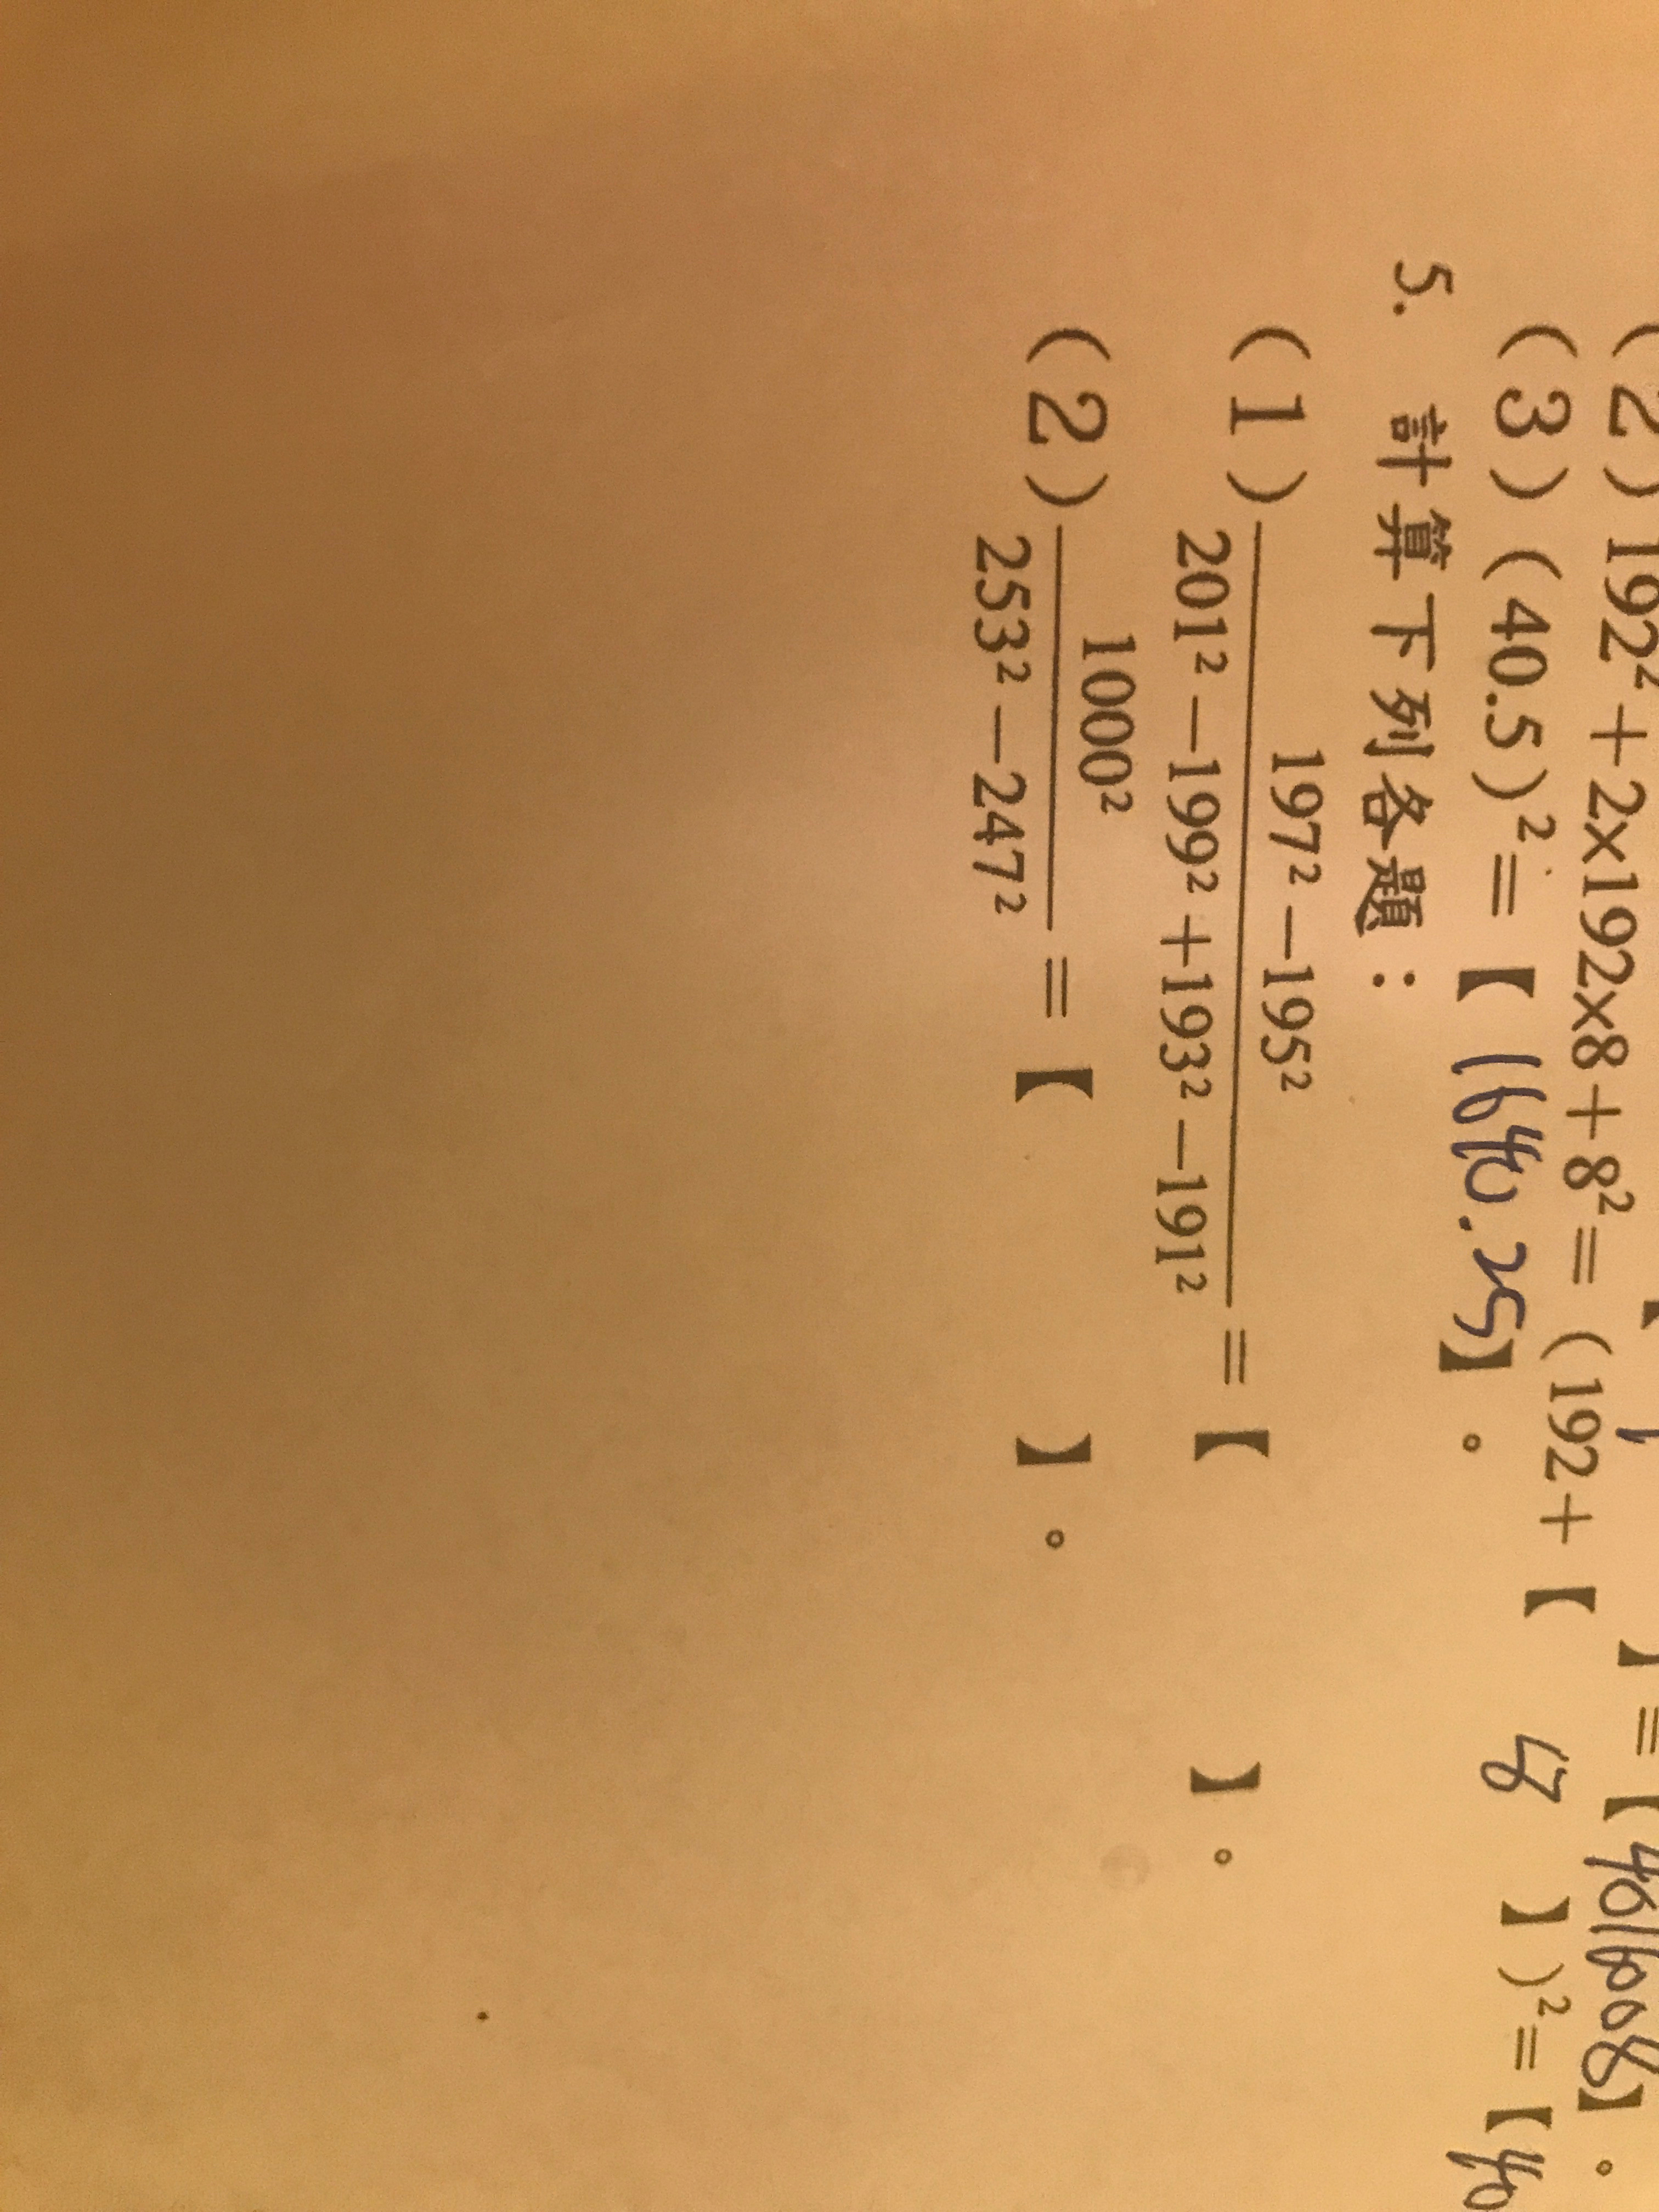 】=【4016008】。
(2)192²+2×192×8+8²=(192+【 8 】)²=【40
(3)(40.5)²=【1640.25】。
5. 計算下列各題：
(1) 197²−195² / 201²−199²+193²−191² =【 】。
(2) 1000² / 253²−247² =【 】。